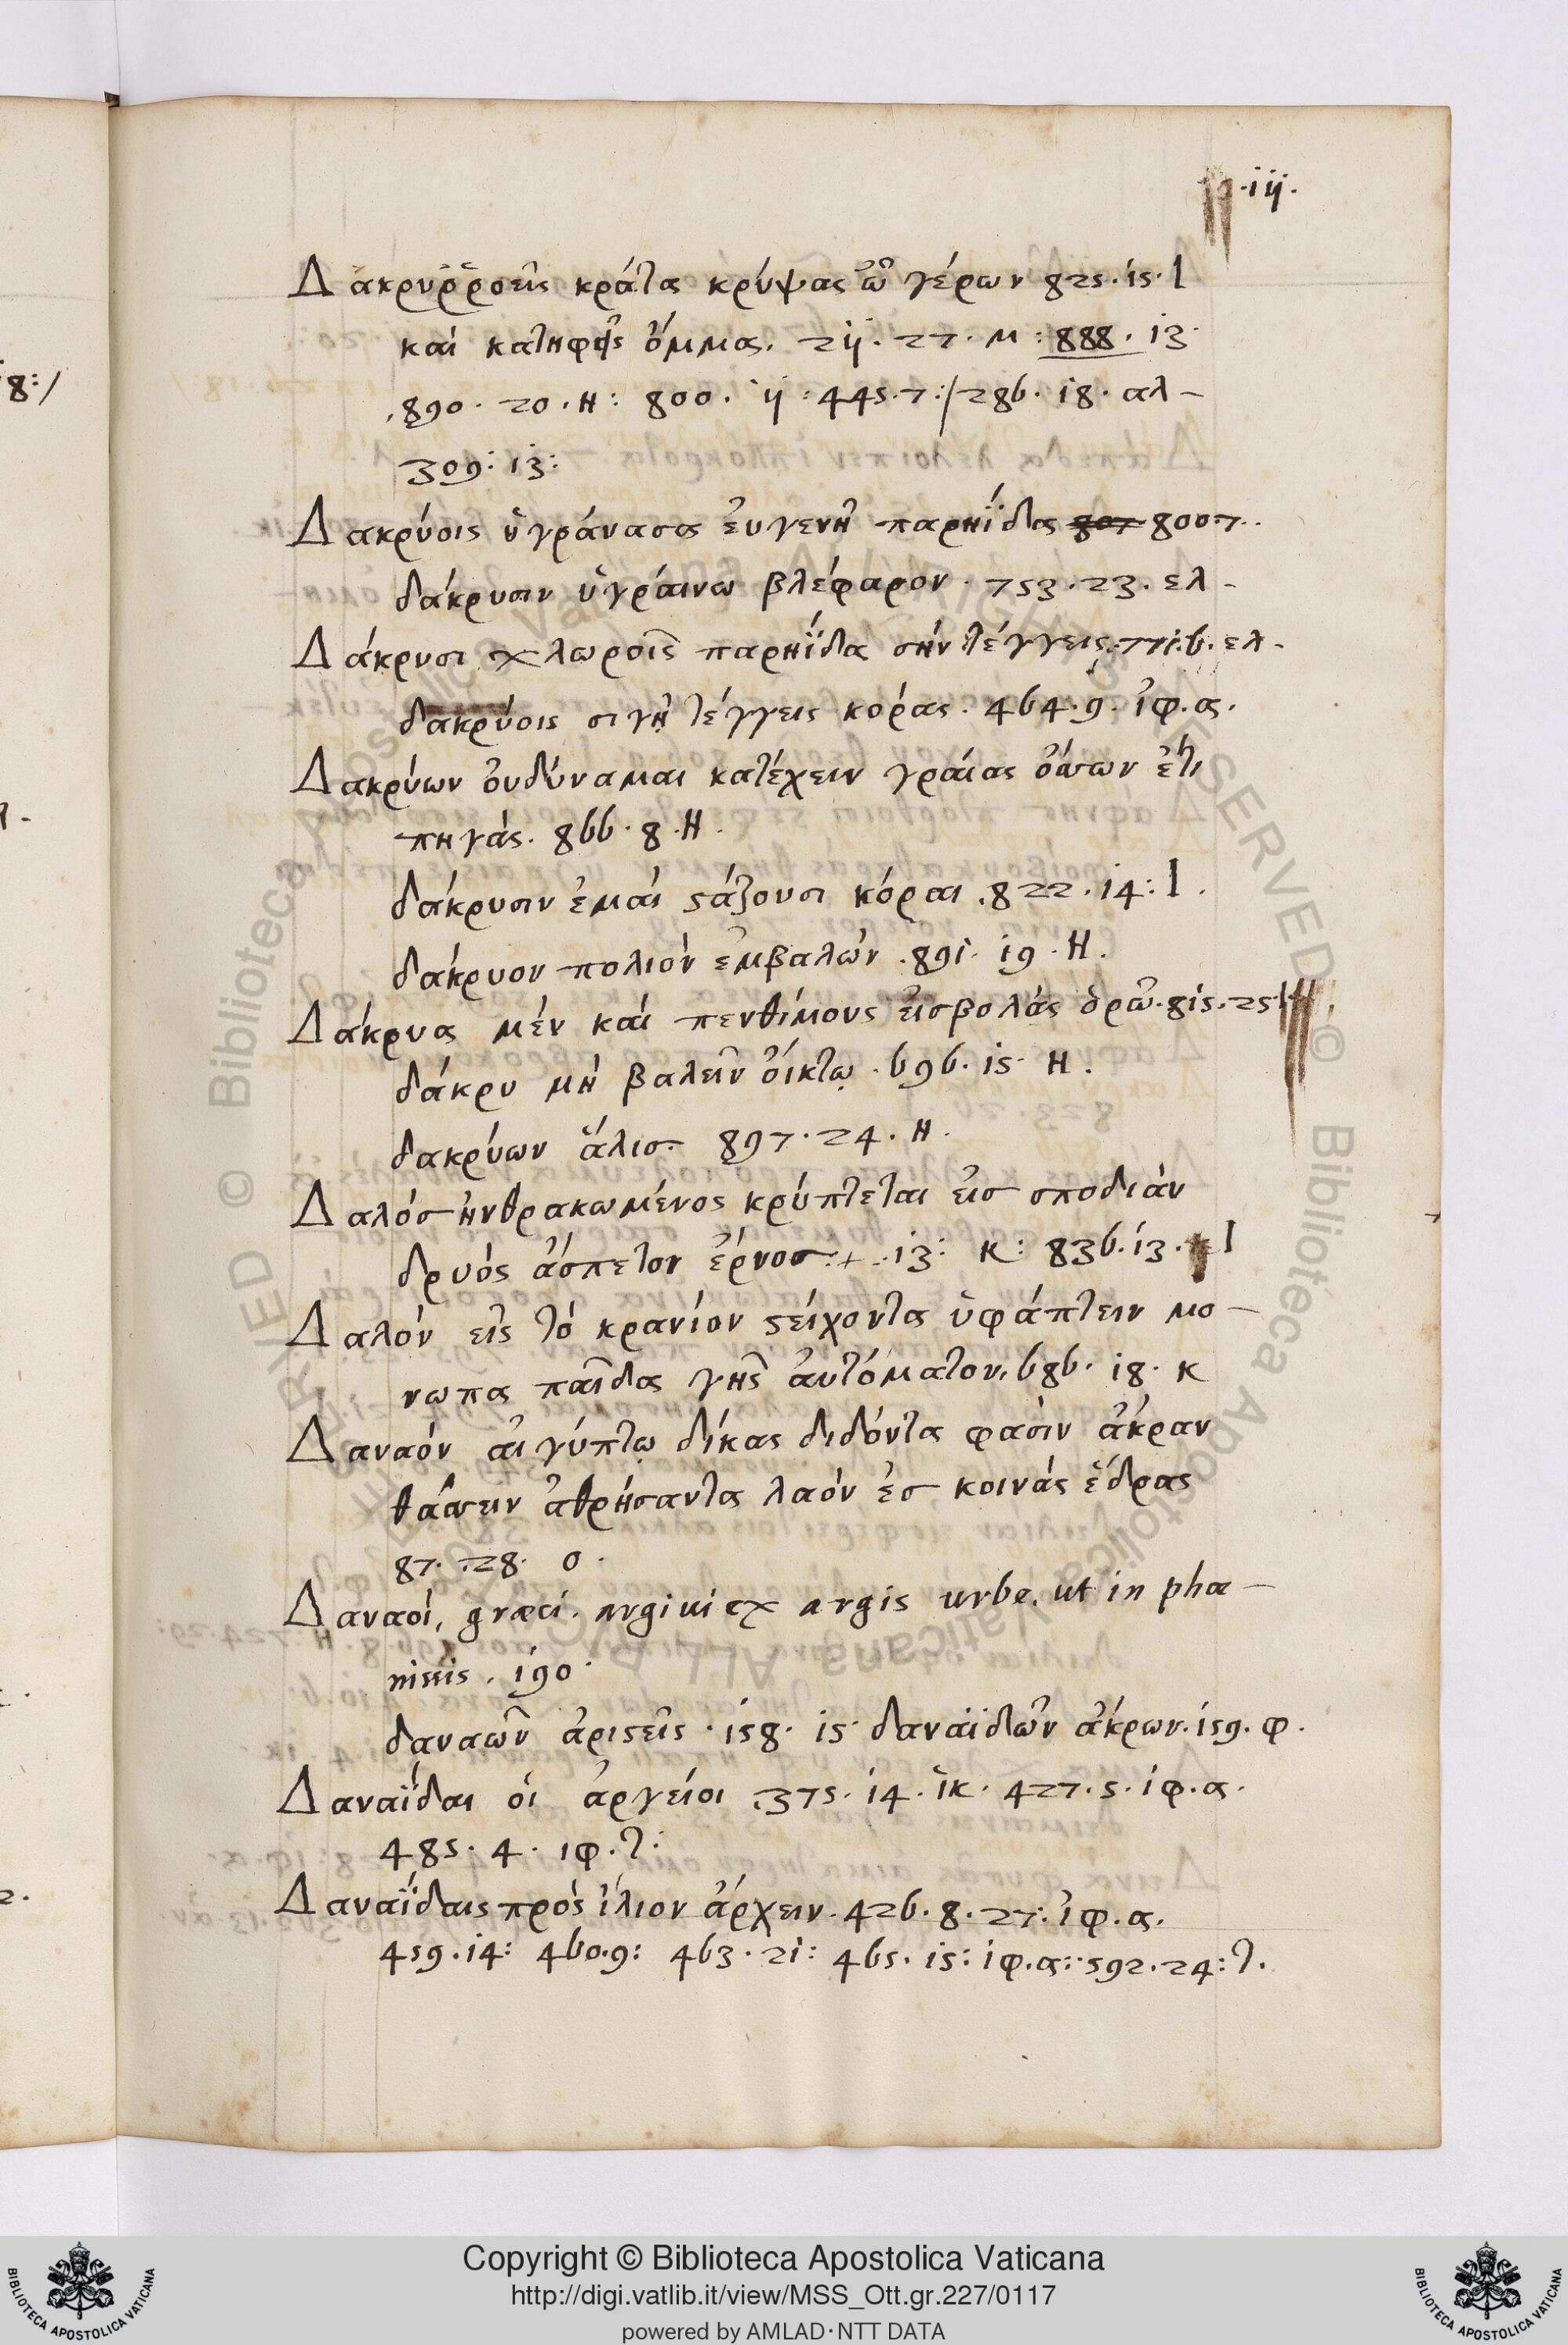 .iij.
Δακρυῤῥοεῖς κράτα κρύψας ὦ γέρων 825.15.l
καὶ κατηφὲς ὄμμα. 211.27.μ: 888.13.
.890.20.н: 800.11:445.7:/286.18.αλ-
309:13:
Δακρύοις ὑγράνασα ἐυγενῆ παρηΐδα 807 800.7.
δάκρυσιν ὑγραίνω βλέφαρον. 753.23. ελ-
Δάκρυσι χλωροῖς παρηΐδα σὴν τέγγεις. 771.6. ελ-
δακρύοις σιγῇ τέγγεις κόρας. 464.9. ἰφ.α.
Δακρύων ὀυδύναμαι κατέχειν γραίας ὄσσων ἔτι
πηγάς. 866.8.Η.
δάκρυσιν ἐμαὶ ϛάζουσι κόραι. 822.14:l.
δάκρυον πολιὸν ἐμβαλών. 891.19.Η.
Δάκρυα μὲν καὶ πενθίμους ἐισβολὰς ὁρῶ. 815.25
δάκρυ μὴ βαλεῖν ὄικτῳ. 696.15. Η.
δακρύων ἅλις. 897.24.н.
Δαλὸς ἠνθρακωμένος κρύπτεται ἐις σποδιὰν
δρυὸς ἄσπετον ἔρνος. 13: κ: 836.13. l
Δαλὸν εἰς τὸ κρανίον ϛείχοντα ὑφάπτειν μο-
νωπα παῖδα γῆς ἀυτόματον. 686.18. κ
Δαναὸν ἀιγύπτῳ δίκας διδόντα φασὶν ἄκραν
θάσσειν ἀθρήσαντα λαὸν ἐς κοινὰς ἕδρας
87.28. ο.
Δαναοὶ, græci. argiui ex argis urbe. ut in phæ-
nissis. 190.
δαναῶν ἀριϛεῖς. 158.15. δαναϊδῶν ἄκρων. 159.φ.
Δαναΐδαι οἱ ἀργείοι 375.14. ἱκ. 427.5. ἰφ.α.
485.4. ιφ.τ:
Δαναΐδαις πρὸς ἴλιον ἄρχειν. 426.8.27: ἰφ.α.
459.14: 460.9: 463.21: 465.15: ἰφ.α: 592.24:τ.
Copyright © Biblioteca Apostolica Vaticana
http://digi.vatlib.it/view/MSS_Ott.gr.227/0117
powered by AMLAD·NTT DATA